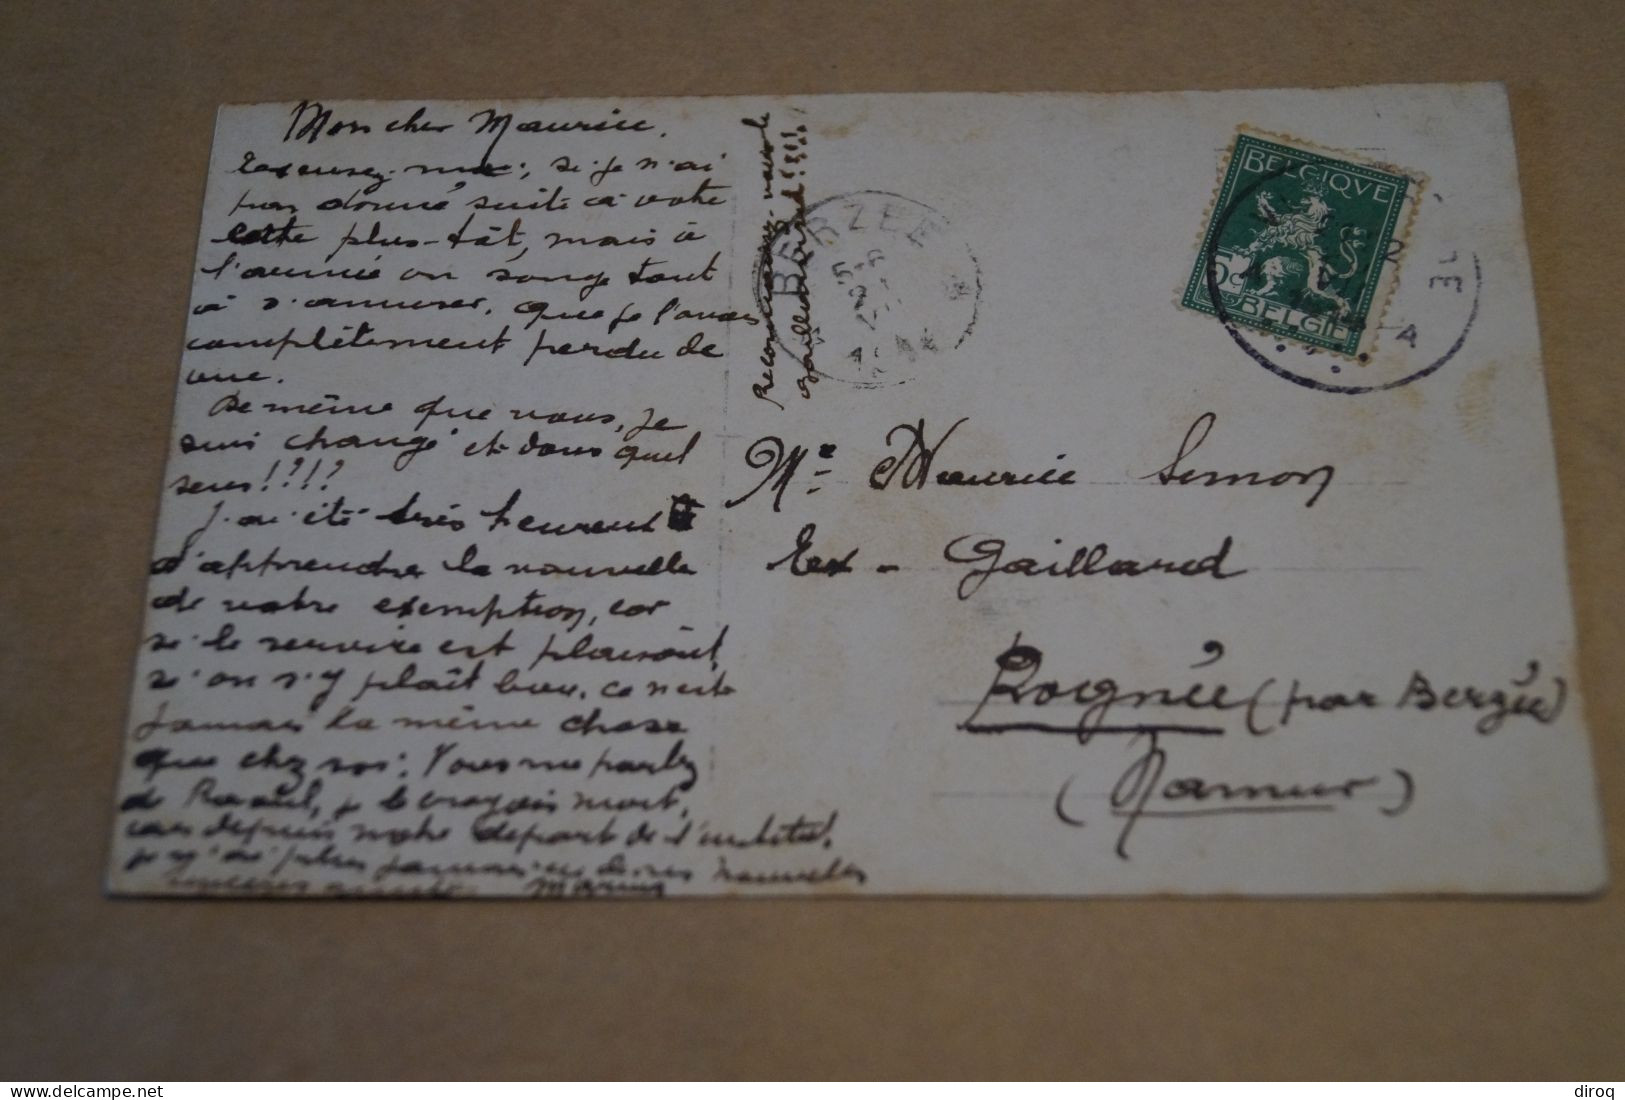 Mon cher Maurice.
Excusez-moi, si je n'ai
pas donné suite à votre
lettre plus-tôt, mais à
l'armée on songe tout
à s'amuser. Que je l'avais
complètement perdu de
vue.
De même que vous, je
suis changé et dans quel
sens!?!?
J'ai été très heureux
d'apprendre la nouvelle
de votre exemption, car
si le service est plaisant,
si on s'y plaît bien, ce n'est
jamais la même chose
que chez soi. Vous me parlez
de Raoul, je le croyais mort,
car depuis notre départ de l'institut,
je n'ai plus jamais eu de ses nouvelles
Marius
Reconnaissez-vous le
gaillard
BERZEE
25
BELGIQUE
5c
BELGIE
A
Mr Maurice Simon
Ex-Gaillard
Rognée (par Berzée)
(Namur)
delcampe.net
diroq